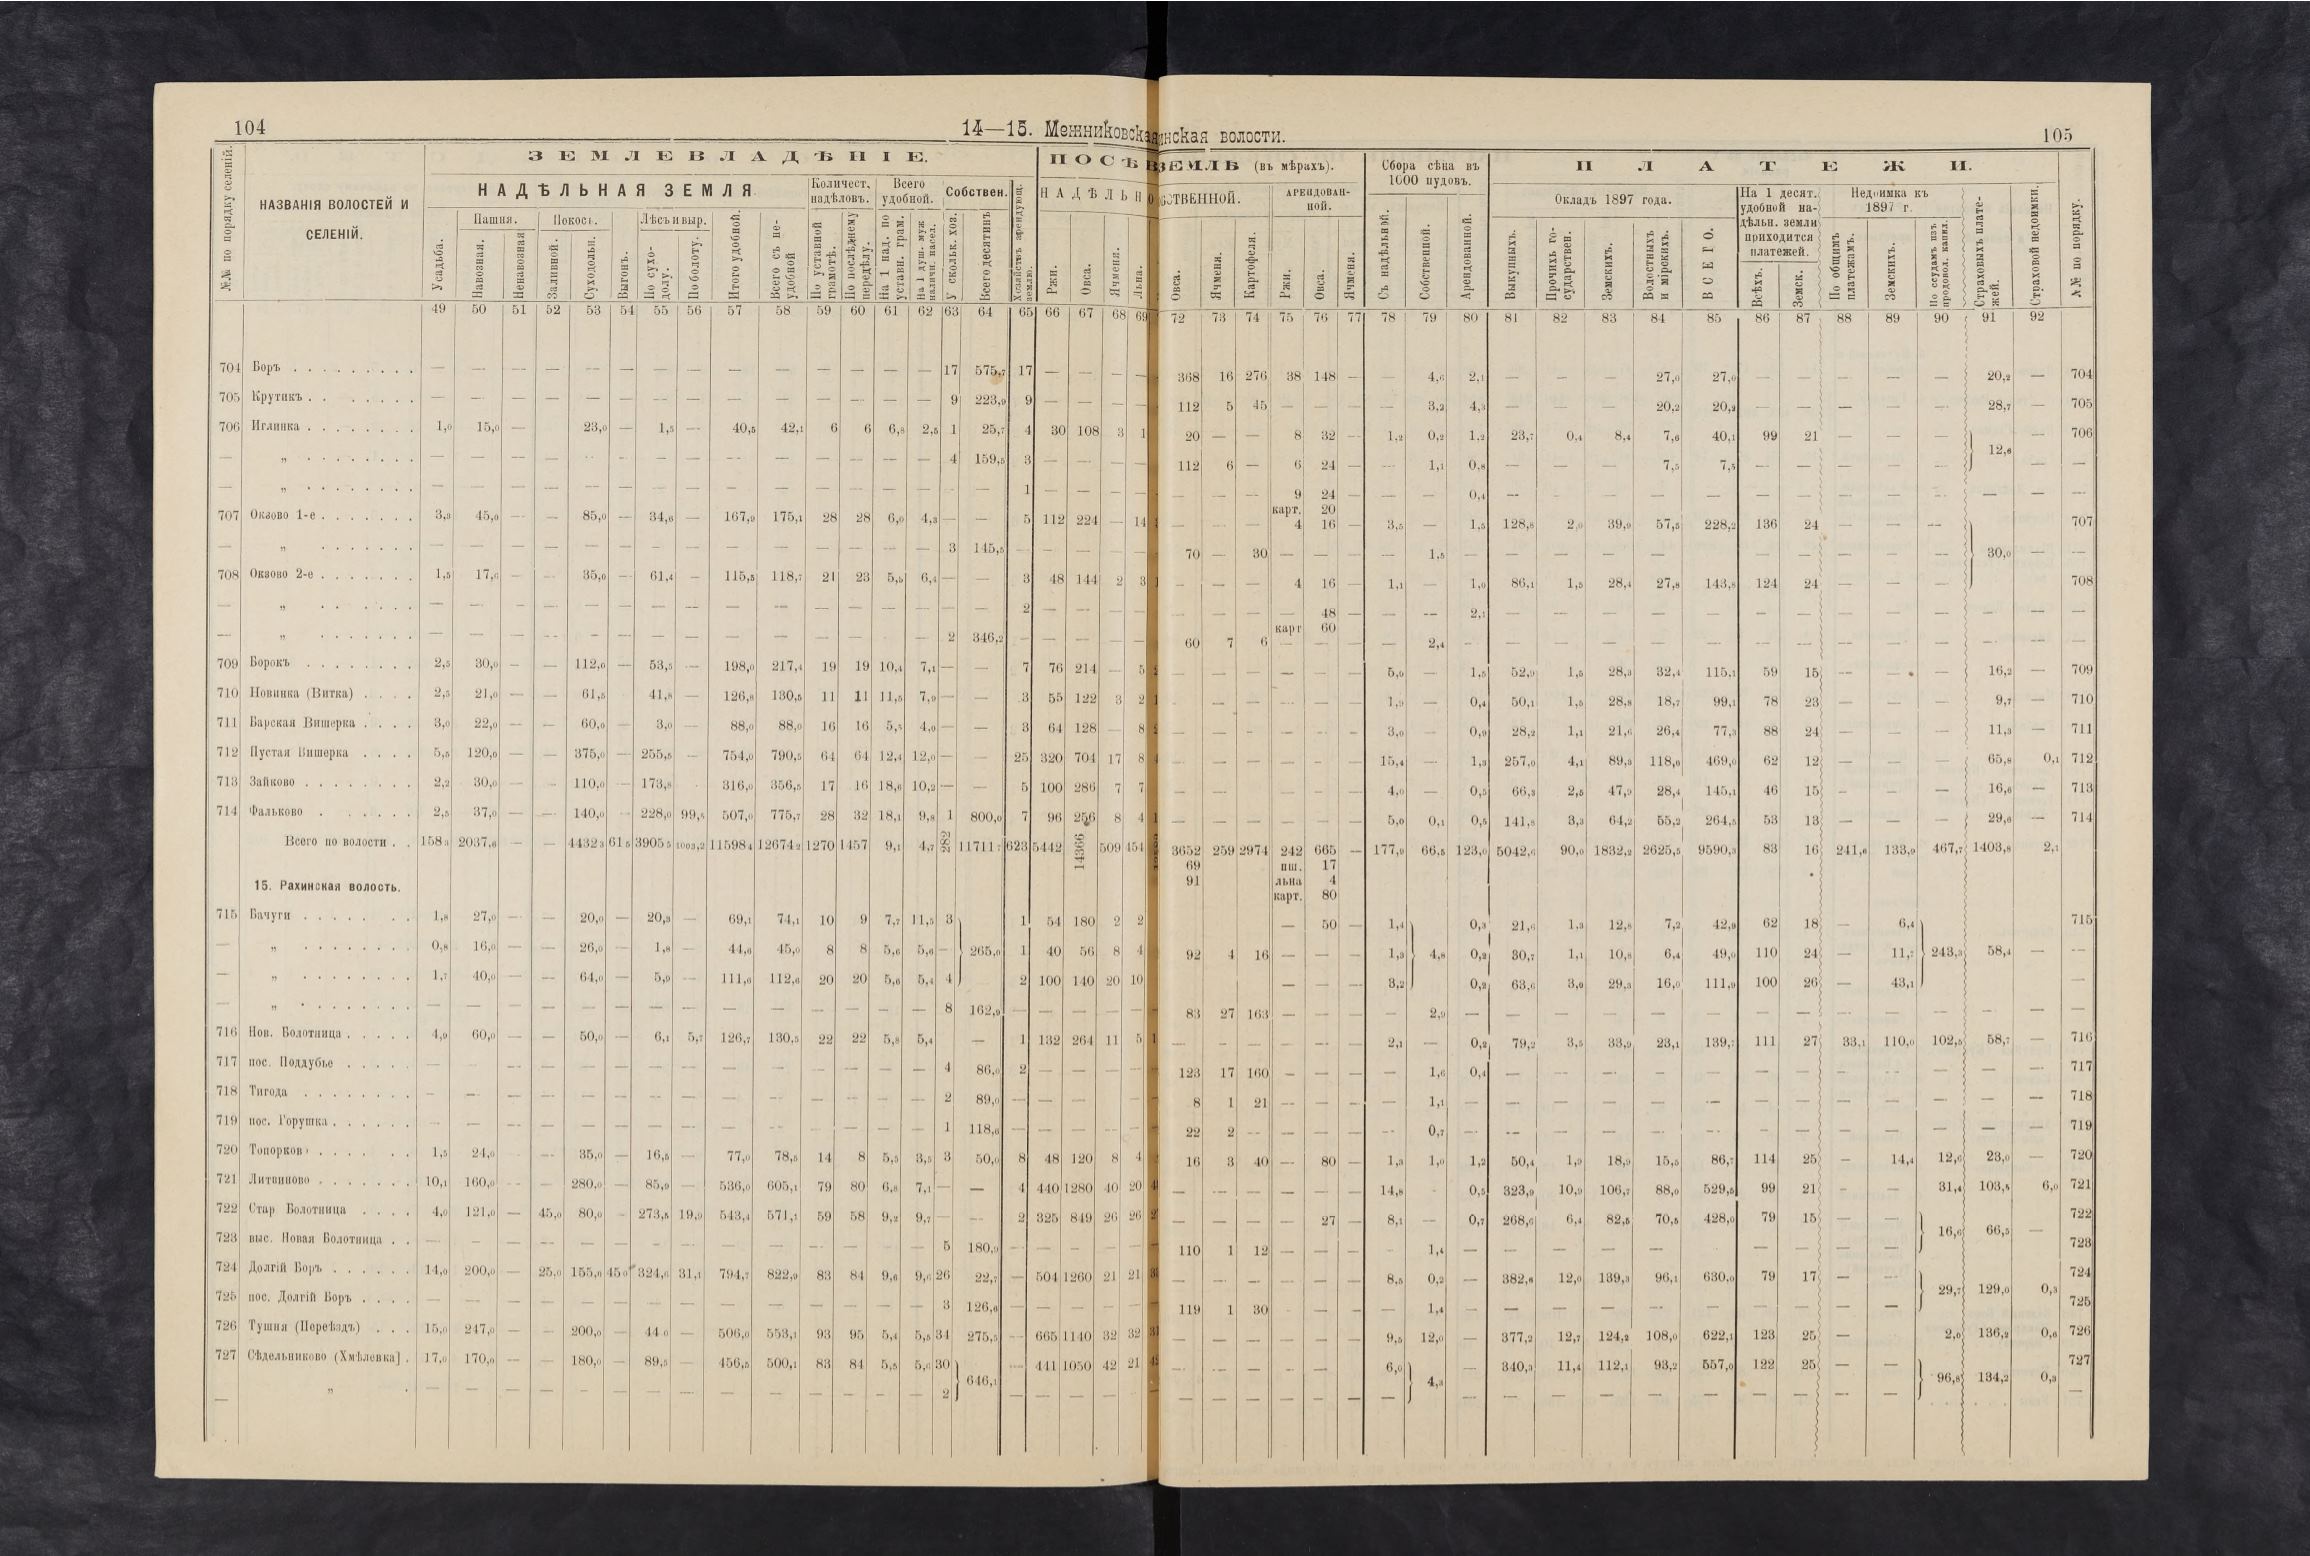 104
14—15. Межниковска
инская волости.
105
№№ по порядку селеній.
НАЗВАНІЯ ВОЛОСТЕЙ И СЕЛЕНІЙ.
ЗЕМЛЕВЛАДѢНІЕ.
НАДѢЛЬНАЯ ЗЕМЛЯ.
Количест. надѣловъ.
Всего удобной.
Собствен.
Хозяйствъ арендующ. землю.
Пашня.
Покосъ.
Лѣсъ и выр.
Усадьба.
Навозная.
Ненавозная
Заливной.
Суходольн.
Выгонъ.
По сухо-долу.
По болоту.
Итого удобной.
Всего съ не-удобной
По уставной грамотѣ.
По послѣднему передѣлу.
На 1 над. по уставн. грам.
На 1 душ. муж наличн. насел.
У скольк. хоз.
Всего десятинъ
ПОСѢВ
ЗЕМЛѢ (въ мѣрахъ).
НАДѢЛЬНО
БСТВЕННОЙ.
АРЕНДОВАН-НОЙ.
Ржи.
Овса.
Ячменя.
Льна.
Овса.
Ячменя.
Картофеля.
Ржи.
Овса.
Ячменя.
Сбора сѣна въ 1000 пудовъ.
Съ надѣльной.
Собственной.
Арендованной.
ПЛАТЕЖИ.
Окладъ 1897 года.
На 1 десят. удобной на-дѣльн. земли приходится платежей.
Недоимка къ 1897 г.
Выкупныхъ.
Прочихъ го-сударствен.
Земскихъ.
Волостныхъ и мірскихъ.
ВСЕГО.
Всѣхъ.
Земск.
По общимъ платежамъ.
Земскихъ.
По ссудамъ изъ продовол. капил.
Страховыхъ плате-жей.
Страховой недоимки.
№№ по порядку.
49 50 51 52 53 54 55 56 57 58 59 60 61 62 63 64 65 66 67 68 69 72 73 74 75 76 77 78 79 80 81 82 83 84 85 86 87 88 89 90 91 92
704 Боръ — — — — — — — — — — — — — — 17 575,7 17 — — — — 368 16 276 38 148 — — 4,6 2,1 — — — 27,0 27,0 — — — — — 20,2 — 704
705 Крутикъ — — — — — — — — — — — — — — 9 223,9 9 — — — — 112 5 45 — — — — 3,2 4,3 — — — 20,2 20,2 — — — — — 28,7 — 705
706 Иглинка 1,0 15,0 — 23,0 — 1,5 — 40,5 42,1 6 6 6,8 2,5 1 25,7 4 30 108 3 1 20 — — 8 32 — 1,2 0,2 1,2 23,7 0,4 8,4 7,6 40,1 99 21 — — — 12,6 — 706
— „ — — — — — — — — — — — — — — 4 159,5 3 — — — — 112 6 — 6 24 — — 1,1 0,8 — — — 7,5 7,5 — — — — — — —
— „ — — — — — — — — — — — — — — — — 1 — — — — — — — 9 24 — — — 0,4 — — — — — — — — — — — — —
карт. 20
707 Окзово 1-е 3,3 45,0 — — 85,0 — 34,6 — 167,9 175,1 28 28 6,0 4,3 — — 5 112 224 — 14 — — — 4 16 — 3,5 — 1,5 128,8 2,0 39,9 57,5 228,2 136 24 — — — 707
— „ — — — — — — — — — — — — — — 3 145,5 — — — — — 70 — 30 — — — — 1,5 — — — — — — — — — — — 30,0 — —
708 Окзово 2-е 1,5 17,6 — — 35,0 — 61,4 — 115,5 118,7 21 23 5,5 6,4 — — 3 48 144 2 3 — — — 4 16 — 1,1 — 1,0 86,1 1,5 28,4 27,8 143,8 124 24 — — — 708
— „ — — — — — — — — — — — — — — — — 2 — — — — — — — — 48 — — — 2,1 — — — — — — — — — — — — —
карт 60
— „ — — — — — — — — — — — — — — 2 346,2 — — — — — 60 7 6 — — — — 2,4 — — — — — — — — — — — — — —
709 Борокъ 2,5 30,0 — — 112,0 — 53,5 — 198,0 217,4 19 19 10,4 7,1 — — 7 76 214 — 5 — — — — — — 5,0 — 1,5 52,9 1,5 28,3 32,4 115,1 59 15 — — — 16,2 — 709
710 Новинка (Витка) 2,5 21,0 — — 61,5 41,8 — 126,8 130,5 11 11 11,5 7,9 — — 3 55 122 3 2 — — — — — — 1,9 — 0,4 50,1 1,5 28,8 18,7 99,1 78 23 — — — 9,7 — 710
711 Барская Вишерка 3,0 22,0 — — 60,0 — 3,0 — 88,0 88,0 16 16 5,5 4,0 — — 3 64 128 — 8 — — — — — — 3,0 — 0,9 28,2 1,1 21,6 26,4 77,3 88 24 — — — 11,3 — 711
712 Пустая Вишерка 5,5 120,0 — — 375,0 — 255,5 — 754,0 790,5 64 64 12,4 12,0 — — 25 320 704 17 8 — — — — — — 15,4 — 1,3 257,0 4,1 89,3 118,0 469,0 62 12 — — — 65,8 0,1 712
713 Зайково 2,2 30,0 — — 110,0 — 173,8 316,0 356,5 17 16 18,6 10,2 — — 5 100 286 7 7 — — — — — — 4,0 — 0,5 66,3 2,5 47,9 28,4 145,1 46 15 — — — 16,6 — 713
714 Фальково 2,5 37,0 — — 140,0 — 228,0 99,5 507,0 775,7 28 32 18,1 9,8 1 800,0 7 96 256 8 4 — — — — — — 5,0 0,1 0,5 141,8 3,3 64,2 55,2 264,5 53 13 — — — 29,6 — 714
Всего по волости 158,3 2037,6 — — 4432,3 61,5 3905,5 1003,2 11598,4 12674,2 1270 1457 9,1 4,7 282 11711,7 623 5442 14366 509 454 3652 259 2974 242 665 — 177,9 66,5 123,0 5042,6 90,0 1832,2 2625,5 9590,3 83 16 241,6 133,9 467,7 1403,8 2,1
69 пш. 17
91 льна 4
карт. 80
15. Рахинская волость.
715 Бачуги 1,8 27,0 — — 20,0 — 20,3 — 69,1 74,1 10 9 7,7 11,5 3 1 54 180 2 2 — 50 — 1,4 0,3 21,6 1,3 12,8 7,2 42,9 62 18 — 6,4 715
— „ 0,8 16,0 — — 26,0 — 1,8 — 44,6 45,0 8 8 5,6 5,6 — 265,0 1 40 56 8 4 92 4 16 — — — 1,3 4,8 0,2 30,7 1,1 10,8 6,4 49,0 110 24 — 11,7 243,3 58,4 — —
— „ 1,7 40,0 — — 64,0 — 5,9 — 111,6 112,6 20 20 5,6 5,4 4 2 100 140 20 10 — — — 3,2 0,2 63,6 3,0 29,3 16,0 111,9 100 26 — 43,1
— „ — — — — — — — — — — — — — — 8 162,9 — — — — — 83 27 163 — — — — 2,9 — — — — — — — — — — — — — —
716 Нов. Болотница 4,9 60,0 — — 50,0 — 6,1 5,7 126,7 130,5 22 22 5,8 5,4 — 1 132 264 11 5 — — — — — — 2,1 — 0,2 79,2 3,5 33,9 23,1 139,7 111 27 33,1 110,0 102,5 58,7 — 716
717 пос. Поддубье — — — — — — — — — — — — — — 4 86,0 2 — — — — 123 17 160 — — — — 1,6 0,4 — — — — — — — — — — — — 717
718 Тигода — — — — — — — — — — — — — — 2 89,0 — — — — — 8 1 21 — — — — 1,1 — — — — — — — — — — — — — 718
719 пос. Горушка — — — — — — — — — — — — — — 1 118,6 — — — — — 22 2 — — — — — 0,7 — — — — — — — — — — — — — 719
720 Топорков 1,5 24,0 — — 35,0 — 16,5 — 77,0 78,5 14 8 5,5 3,5 3 50,0 8 48 120 8 4 16 3 40 — 80 — 1,3 1,0 1,2 50,4 1,9 18,9 15,5 86,7 114 25 — 14,4 12,6 23,0 — 720
721 Литвиново 10,1 160,0 — — 280,0 — 85,9 — 536,0 605,1 79 80 6,8 7,1 — — 4 440 1280 40 20 — — — — — — 14,8 0,5 323,9 10,9 106,7 88,0 529,5 99 21 — — 31,4 103,5 6,0 721
722 Стар Болотница 4,0 121,0 — 45,0 80,0 — 273,5 19,9 543,4 571,1 59 58 9,2 9,7 — — 2 325 849 26 26 — — — — 27 — 8,1 — 0,7 268,6 6,4 82,5 70,5 428,0 79 15 — — 16,6 66,5 — 722
723 выс. Новая Болотница — — — — — — — — — — — — — — 5 180,9 — — — — — 110 1 12 — — — — 1,4 — — — — — — — — — — 723
724 Долгій Боръ 14,0 200,0 — 25,0 155,0 45,0 324,6 31,1 794,7 822,9 83 84 9,6 9,6 26 22,7 — 504 1260 21 21 — — — — — — 8,5 0,2 — 382,6 12,0 139,3 96,1 630,0 79 17 — — 29,7 129,0 0,3 724
725 пос. Долгій Боръ — — — — — — — — — — — — — — 3 126,6 — — — — — 119 1 30 — — — — 1,4 — — — — — — — — — — 725
726 Тушня (Переѣздъ) 15,0 247,0 — — 200,0 — 44,0 — 506,0 553,1 93 95 5,4 5,5 34 275,5 — 665 1140 32 32 — — — — — — 9,5 12,0 — 377,2 12,7 124,2 108,0 622,1 123 25 — 2,0 136,2 0,6 726
727 Сѣдельниково (Хмѣлевка] 17,0 170,0 — — 180,0 — 89,5 — 456,5 500,1 83 84 5,5 5,6 30 — 441 1050 42 21 — — — — — — 6,0 — 340,3 11,4 112,1 93,2 557,0 122 25 — — 96,8 134,2 0,3 727
— „ — — — — — — — — — — — — — — 2 646,1 — — — — — — — — — — — — 4,3 — — — — — — — — — — —